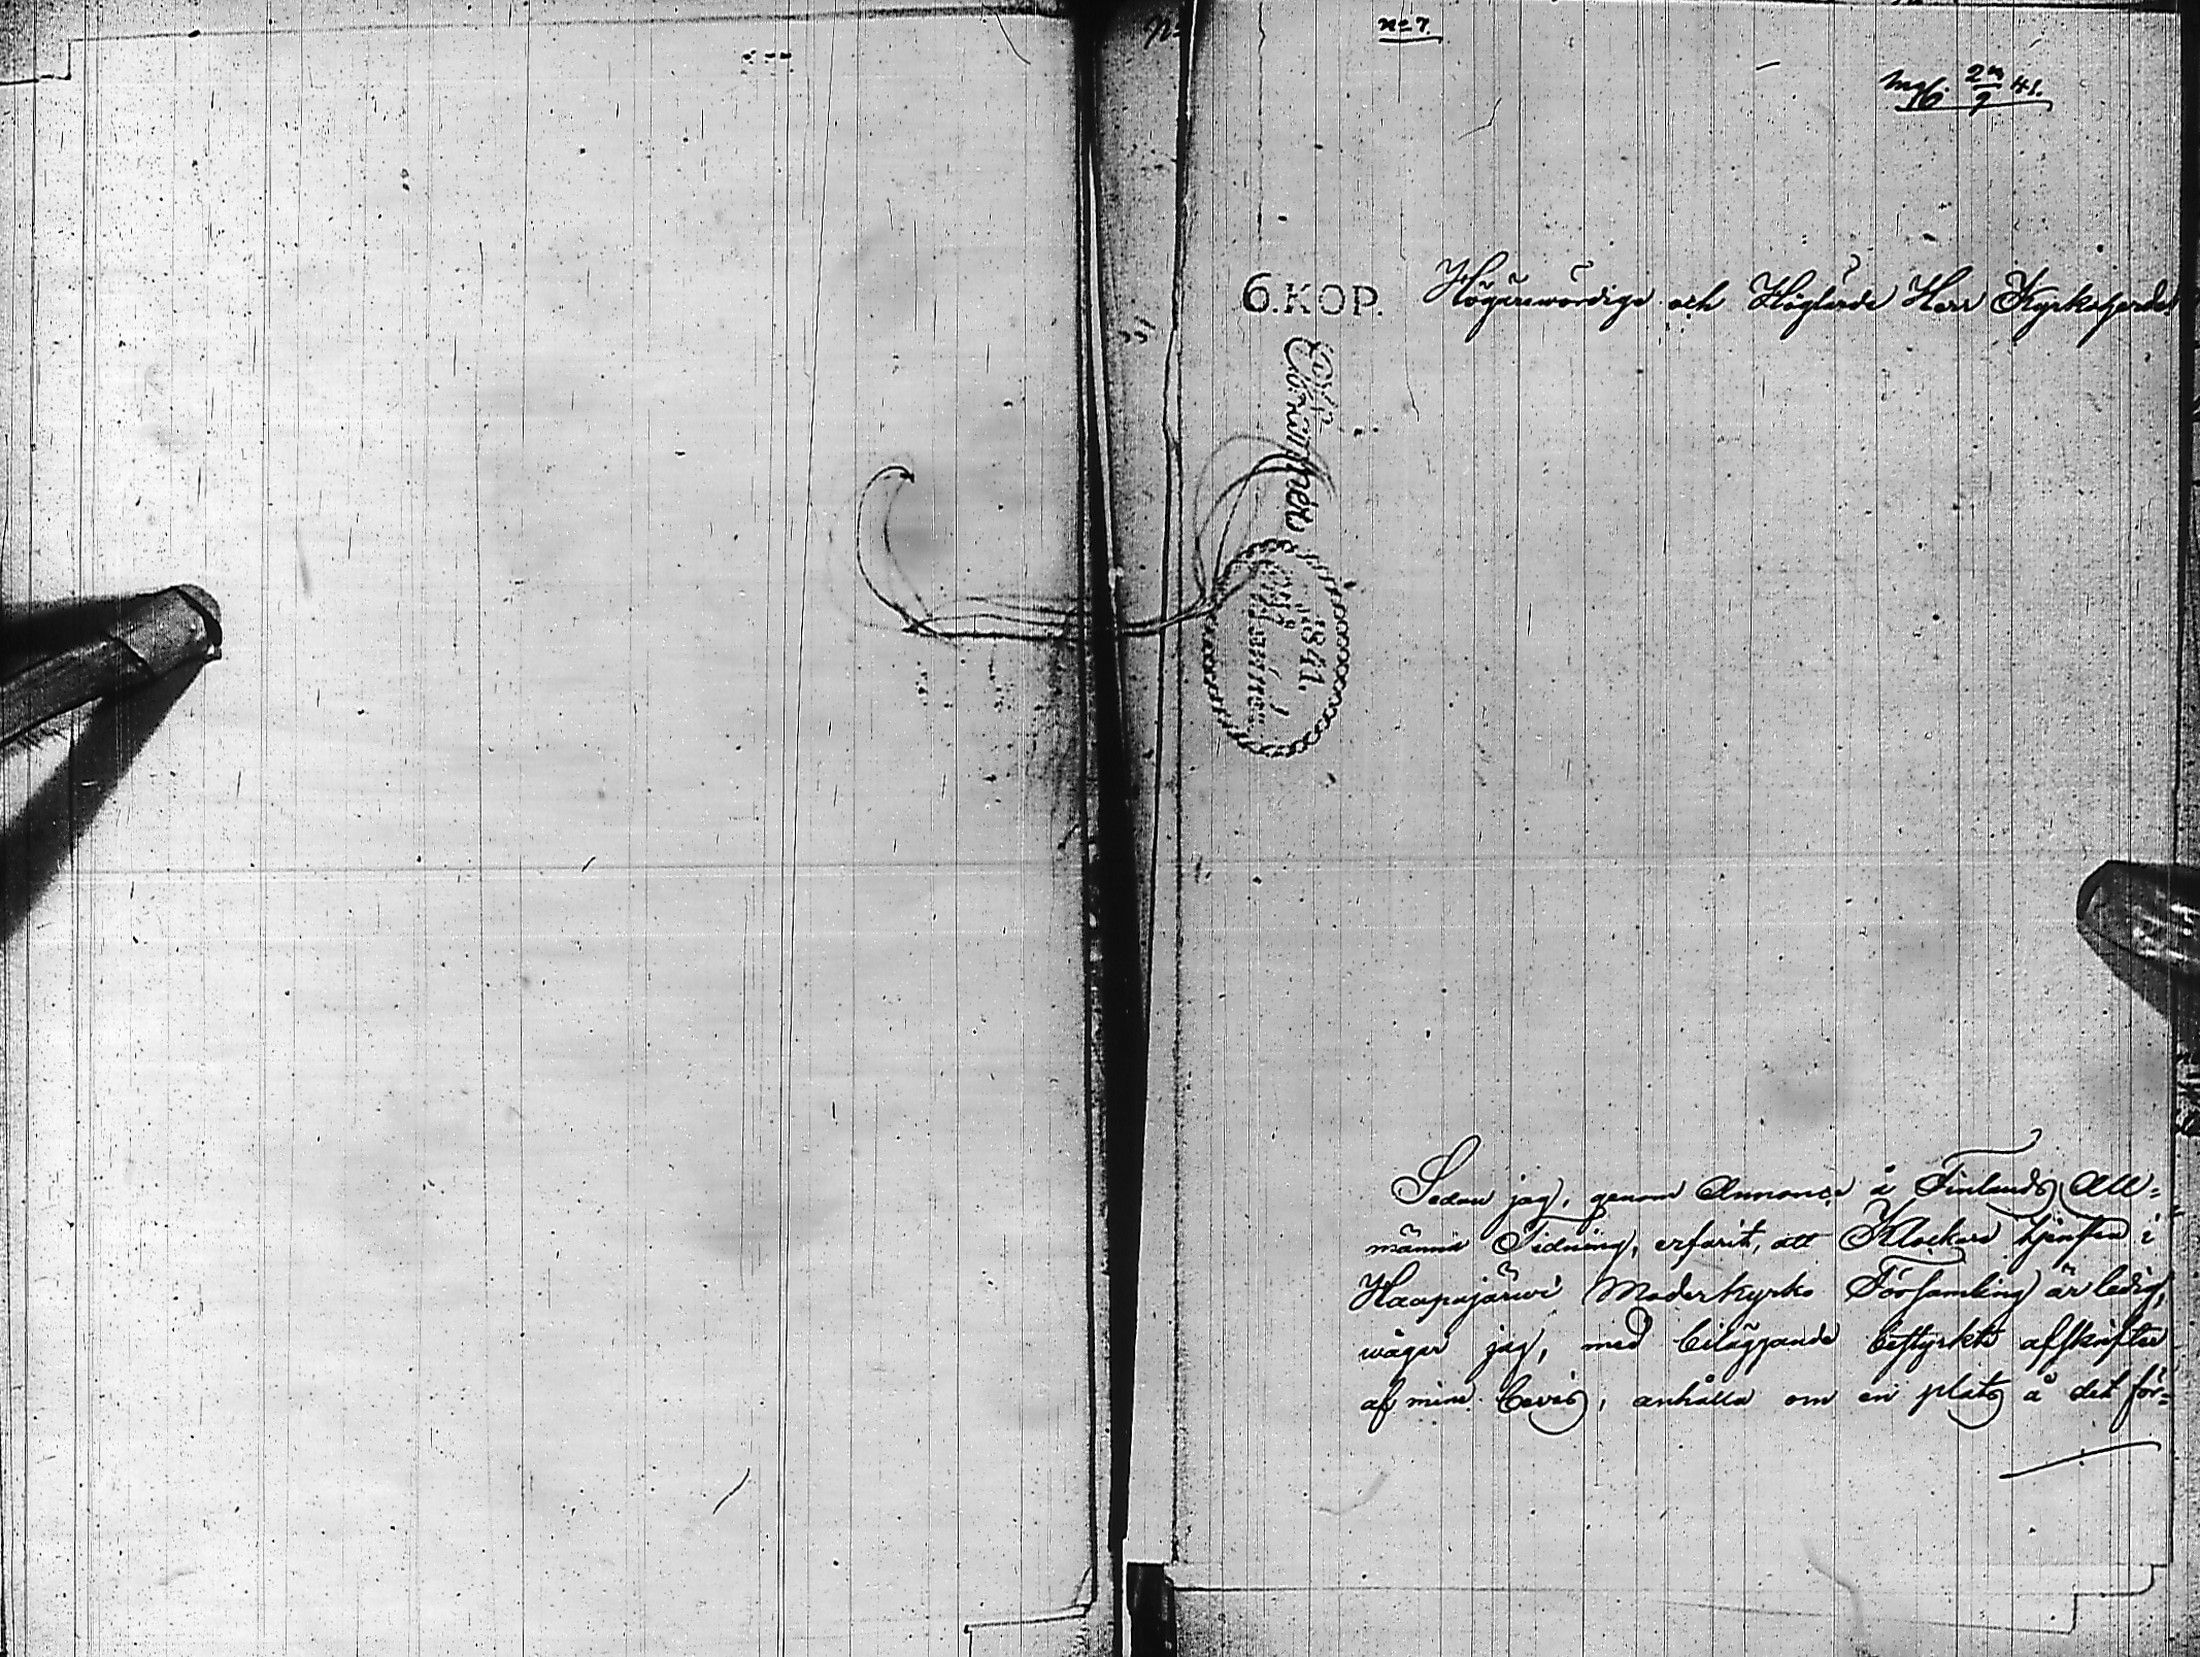 no 7.
2 41.
9
6.KOP.
Högärewördige och Höglärde Herr Kyrkoherde!
1841.
Sedan jag, genom Annonce å Finlands All=
männa Tidning, erfarit, att Klockare tjensten i
Haapajärwi Moderkyrko Församling är ledig,
wågar jag, med biläggande bestyrkte afskrifter
af mine bevis, anhålla om en plats å det för=